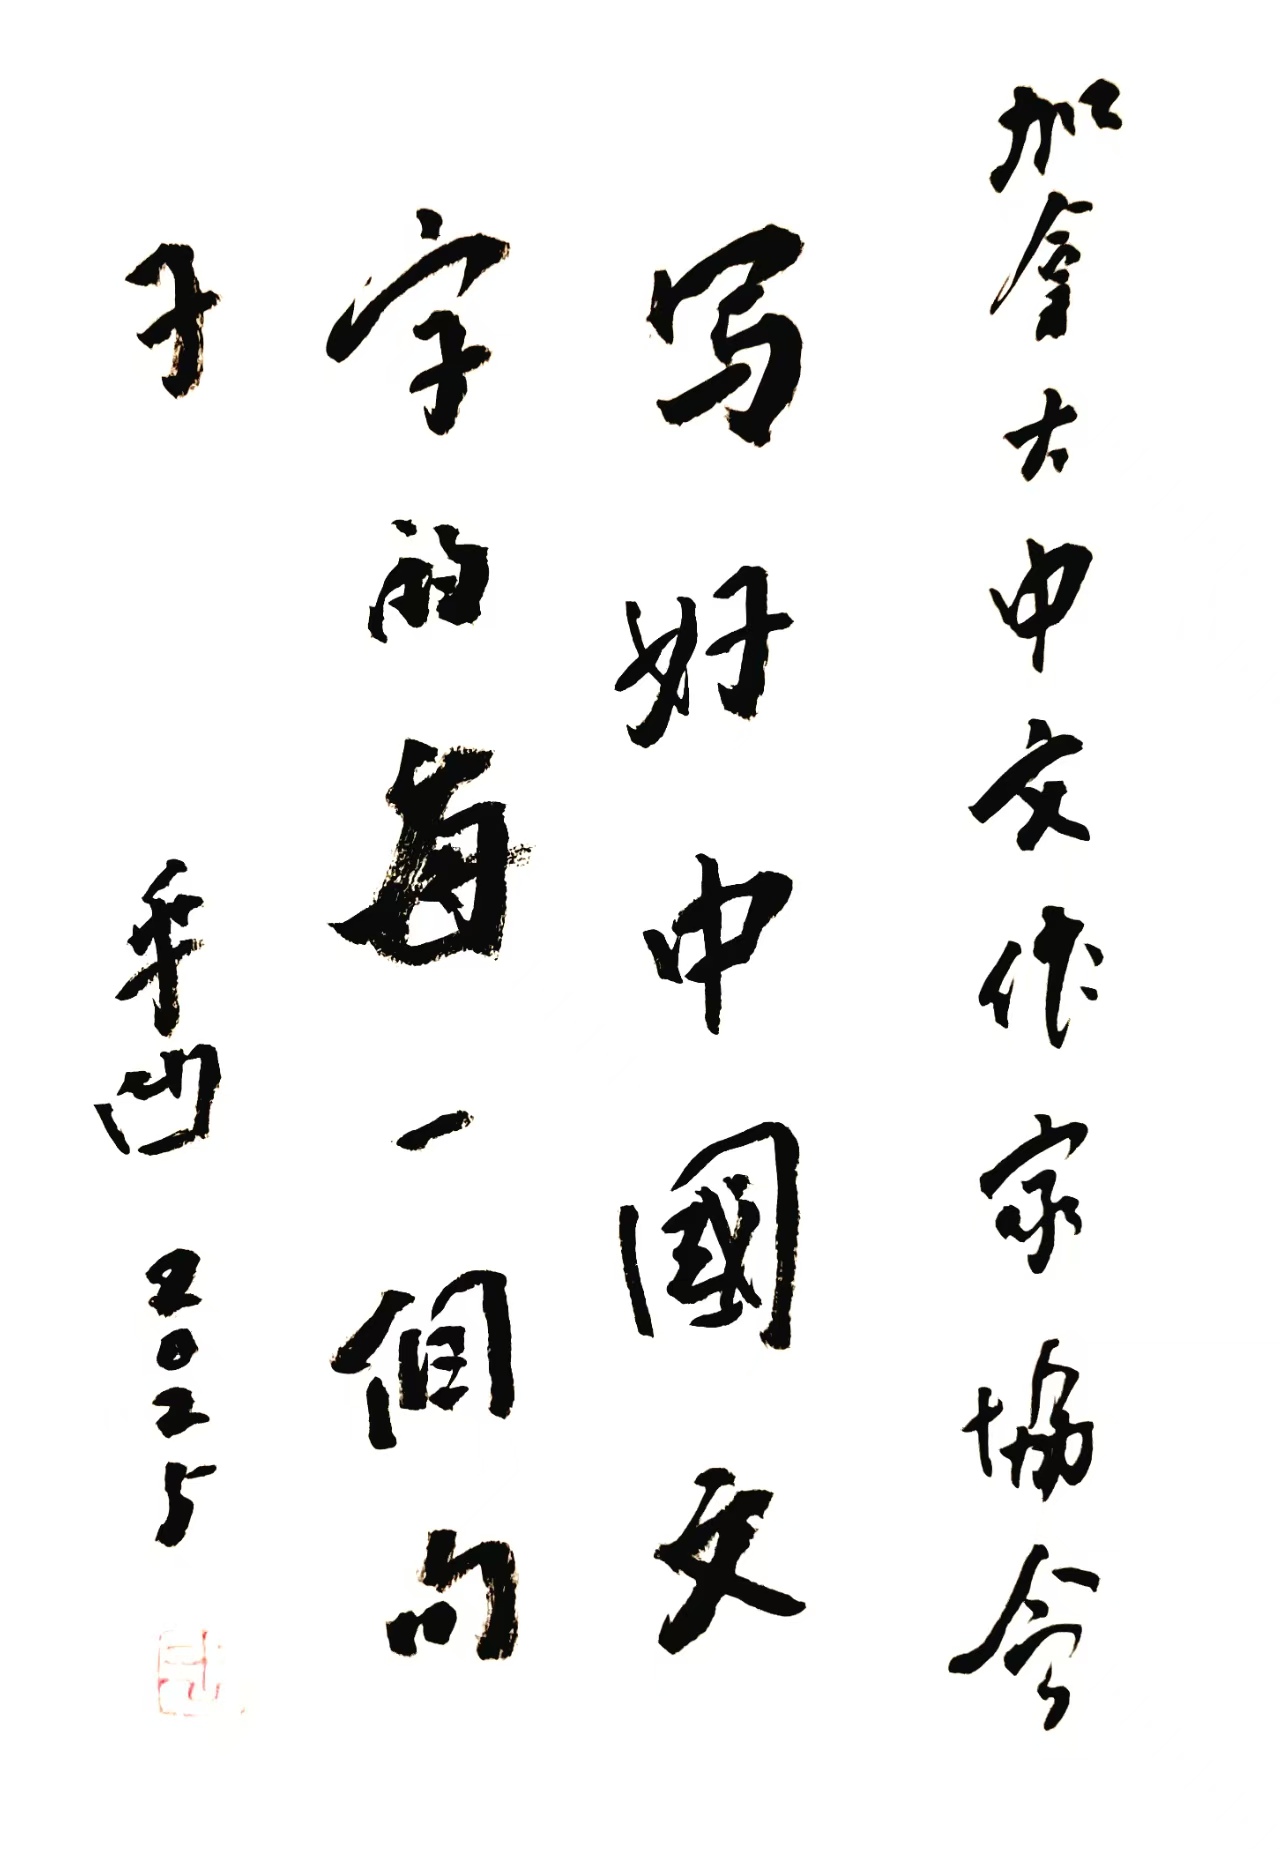 加拿大中文作家協会
写好中國文
字的每一個句
子
平凹 2025